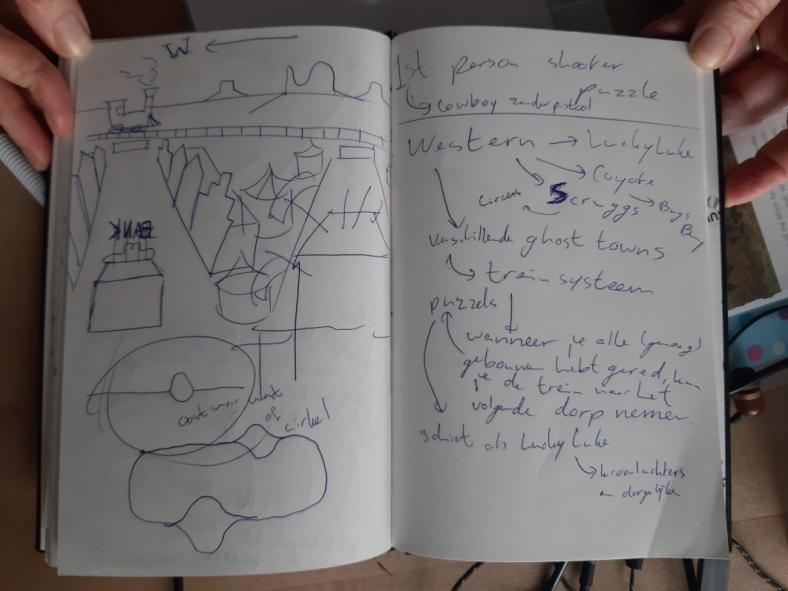 W
BANK
oost naar west
of
cirkel
1st person shooter
puzzle
cowboy zonder pistool
Western → Lucky Luke
Coyote
circus Scruggs → Bugs
Bunny
verschillende ghost towns
trein systeem
puzzels
wanneer je alle (genoeg)
gebouwen hebt gered, kan
je de trein naar het
volgende dorp nemen.
schiet als lucky luke
kroonluchters
en dergelijken